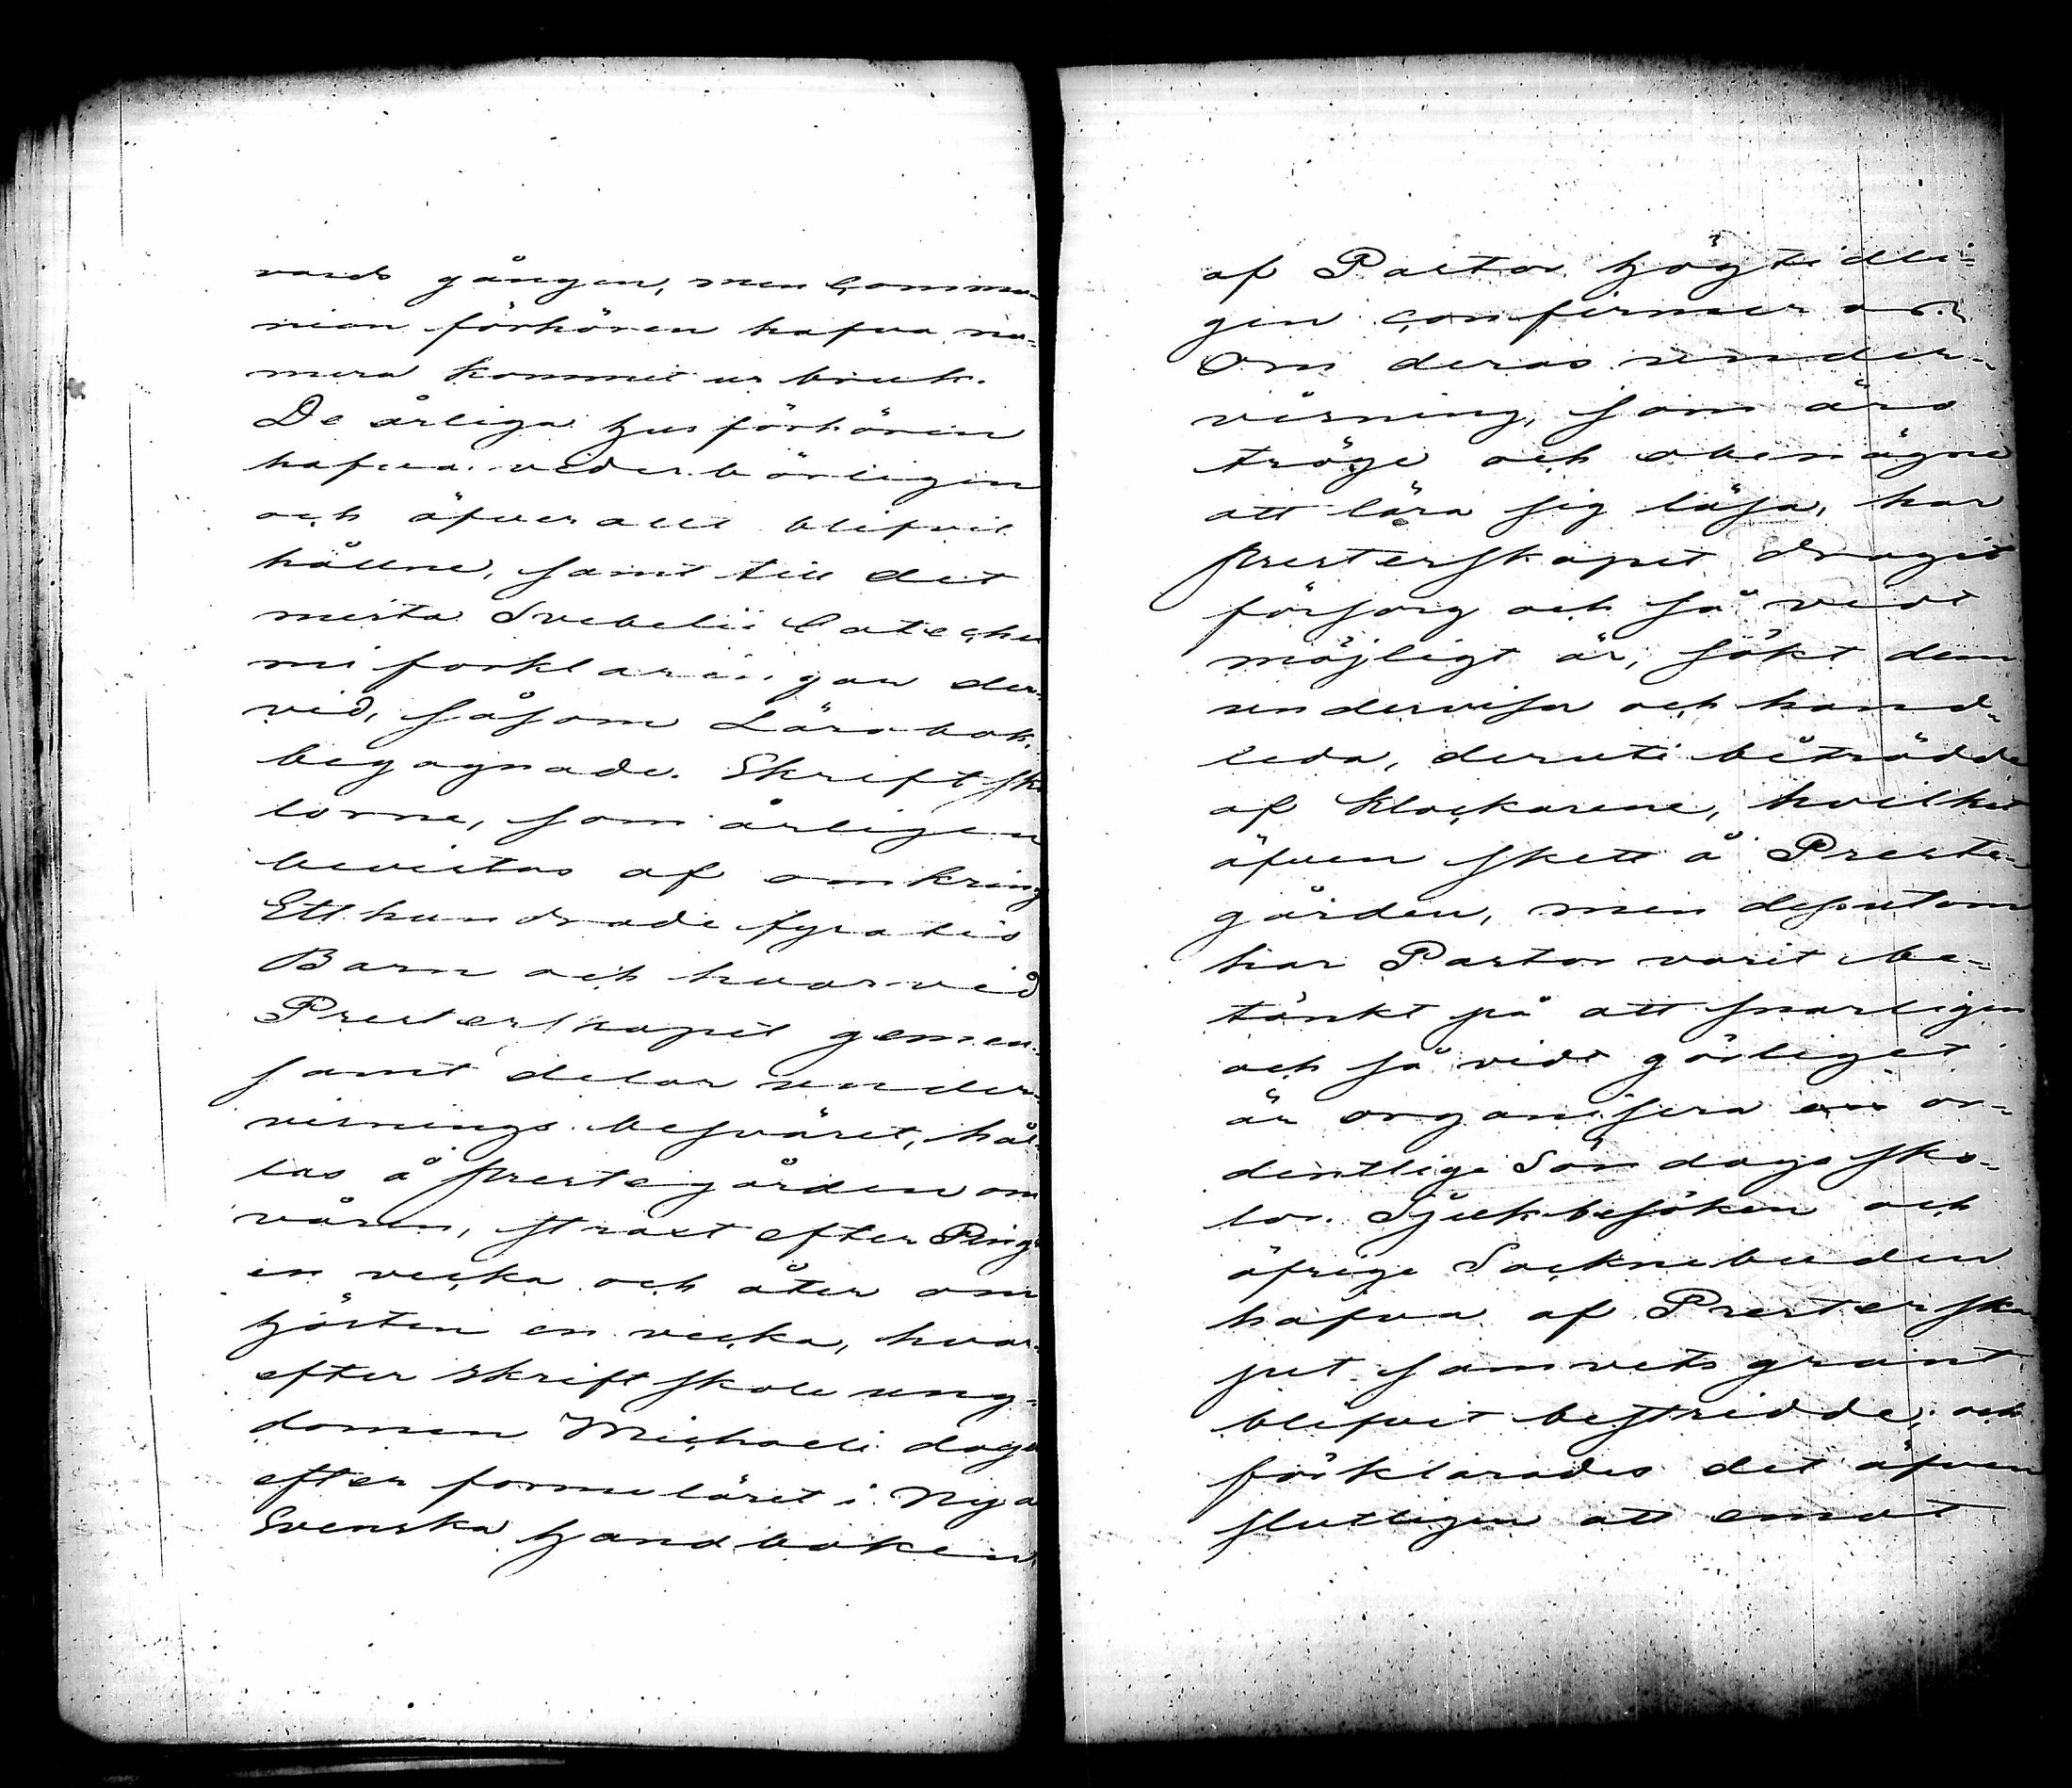 vards gången, men Commu-
nion förhören hafva nu-
mera kommit ur bruk.
De årliga Husförhören
hafva vederbörligen
och öfverallt blifvit
hållne, samt till det
mesta Svebelii Cateche
mi forklaringar der-
vid, såsom Lärobok,
begagnade. Skriftsko
lorne, som årligen
bevistas af omkring
Etthundrade fyratio
Barn och hvarvid
Presterskapet gemen-
samt delar under-
visnings besväret, hål-
las å prestegården om
våren, straxt efter Pings
en vecka och åter om
Hösten en vecka, hvar-
efter skriftskole ung-
domen Michaeli dagen
efter formuläret i Nya
Svenska Handboken,
af Pastor Högtidli-
gen confirmeras.
Om deras under-
visning, som äro
tröge och obenägne
att lära sig läsa, har
presterskapet dragit
försorg och så vidt
möjligt är, sökt dem
undervisa och hand-
leda, deruti biträdde
af Klockarene, hvilket
äfven skett å Preste-
gården, men dessutom
har Pastor varit be-
tänkt på att snarligen
och så vidt görligt
är organisera en or-
dentlige Söndags sko-
lor. Sjukbesöken och
öfrige Socknebuden
hafva af Presterska
pet samvets grant
blifvit bestridde, och
förklarades det äfven
slutligen att emot